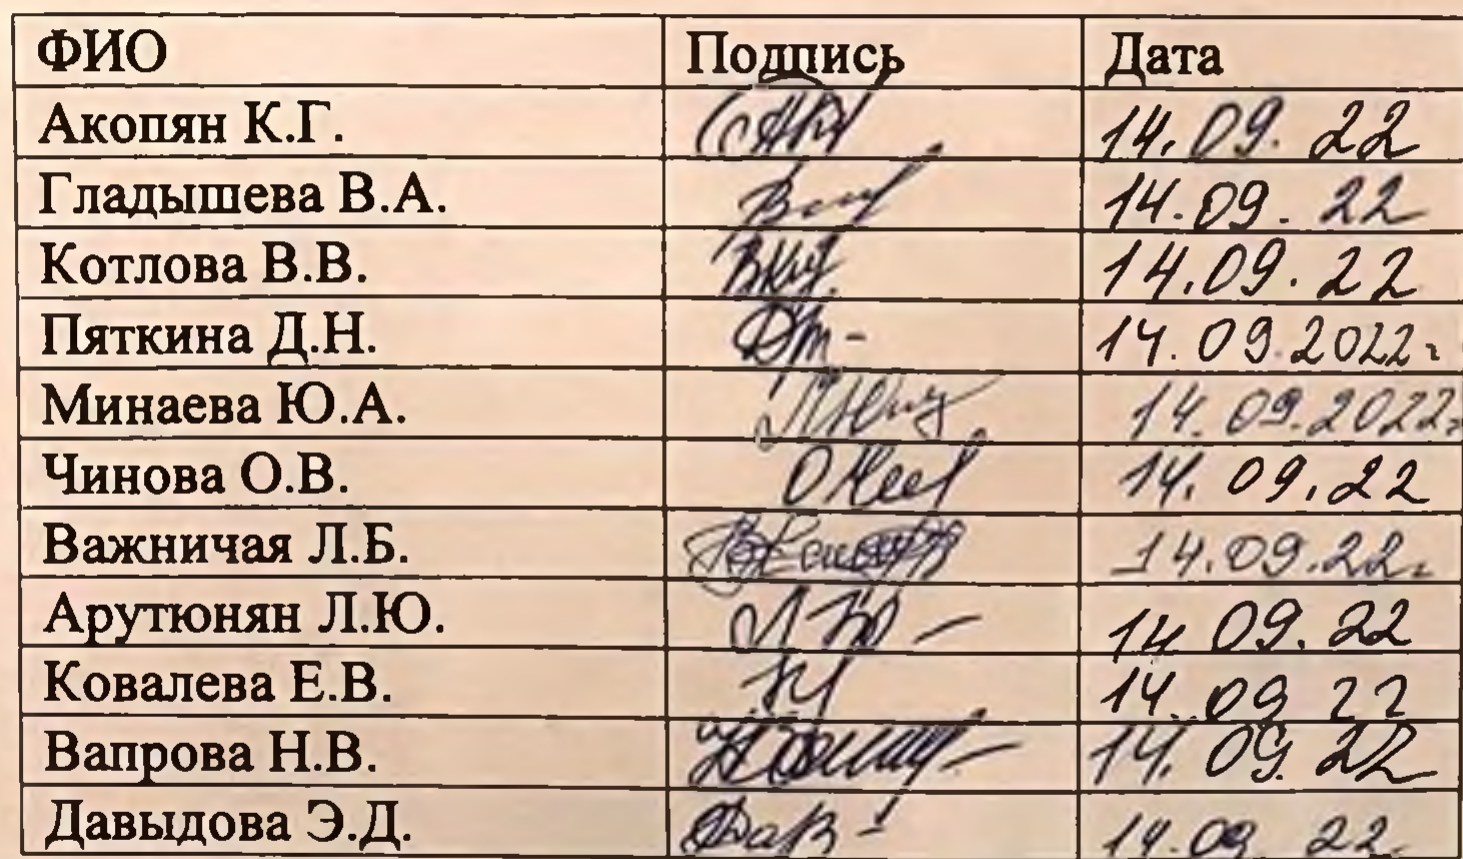 ФИО Подпись Дата
Акопян К.Г. 14.09.22
Гладышева В.А. 14.09.22
Котлова В.В. 14.09.22
Пяткина Д.Н. 14.09.2022г
Минаева Ю.А. 14.09.2022г
Чинова О.В. 14.09.22
Важничая Л.Б. 14.09.22г
Арутюнян Л.Ю. 14 09.22
Ковалева Е.В. 14.09 22
Вапрова Н.В. 14.09.22
Давыдова Э.Д. 14.09.22